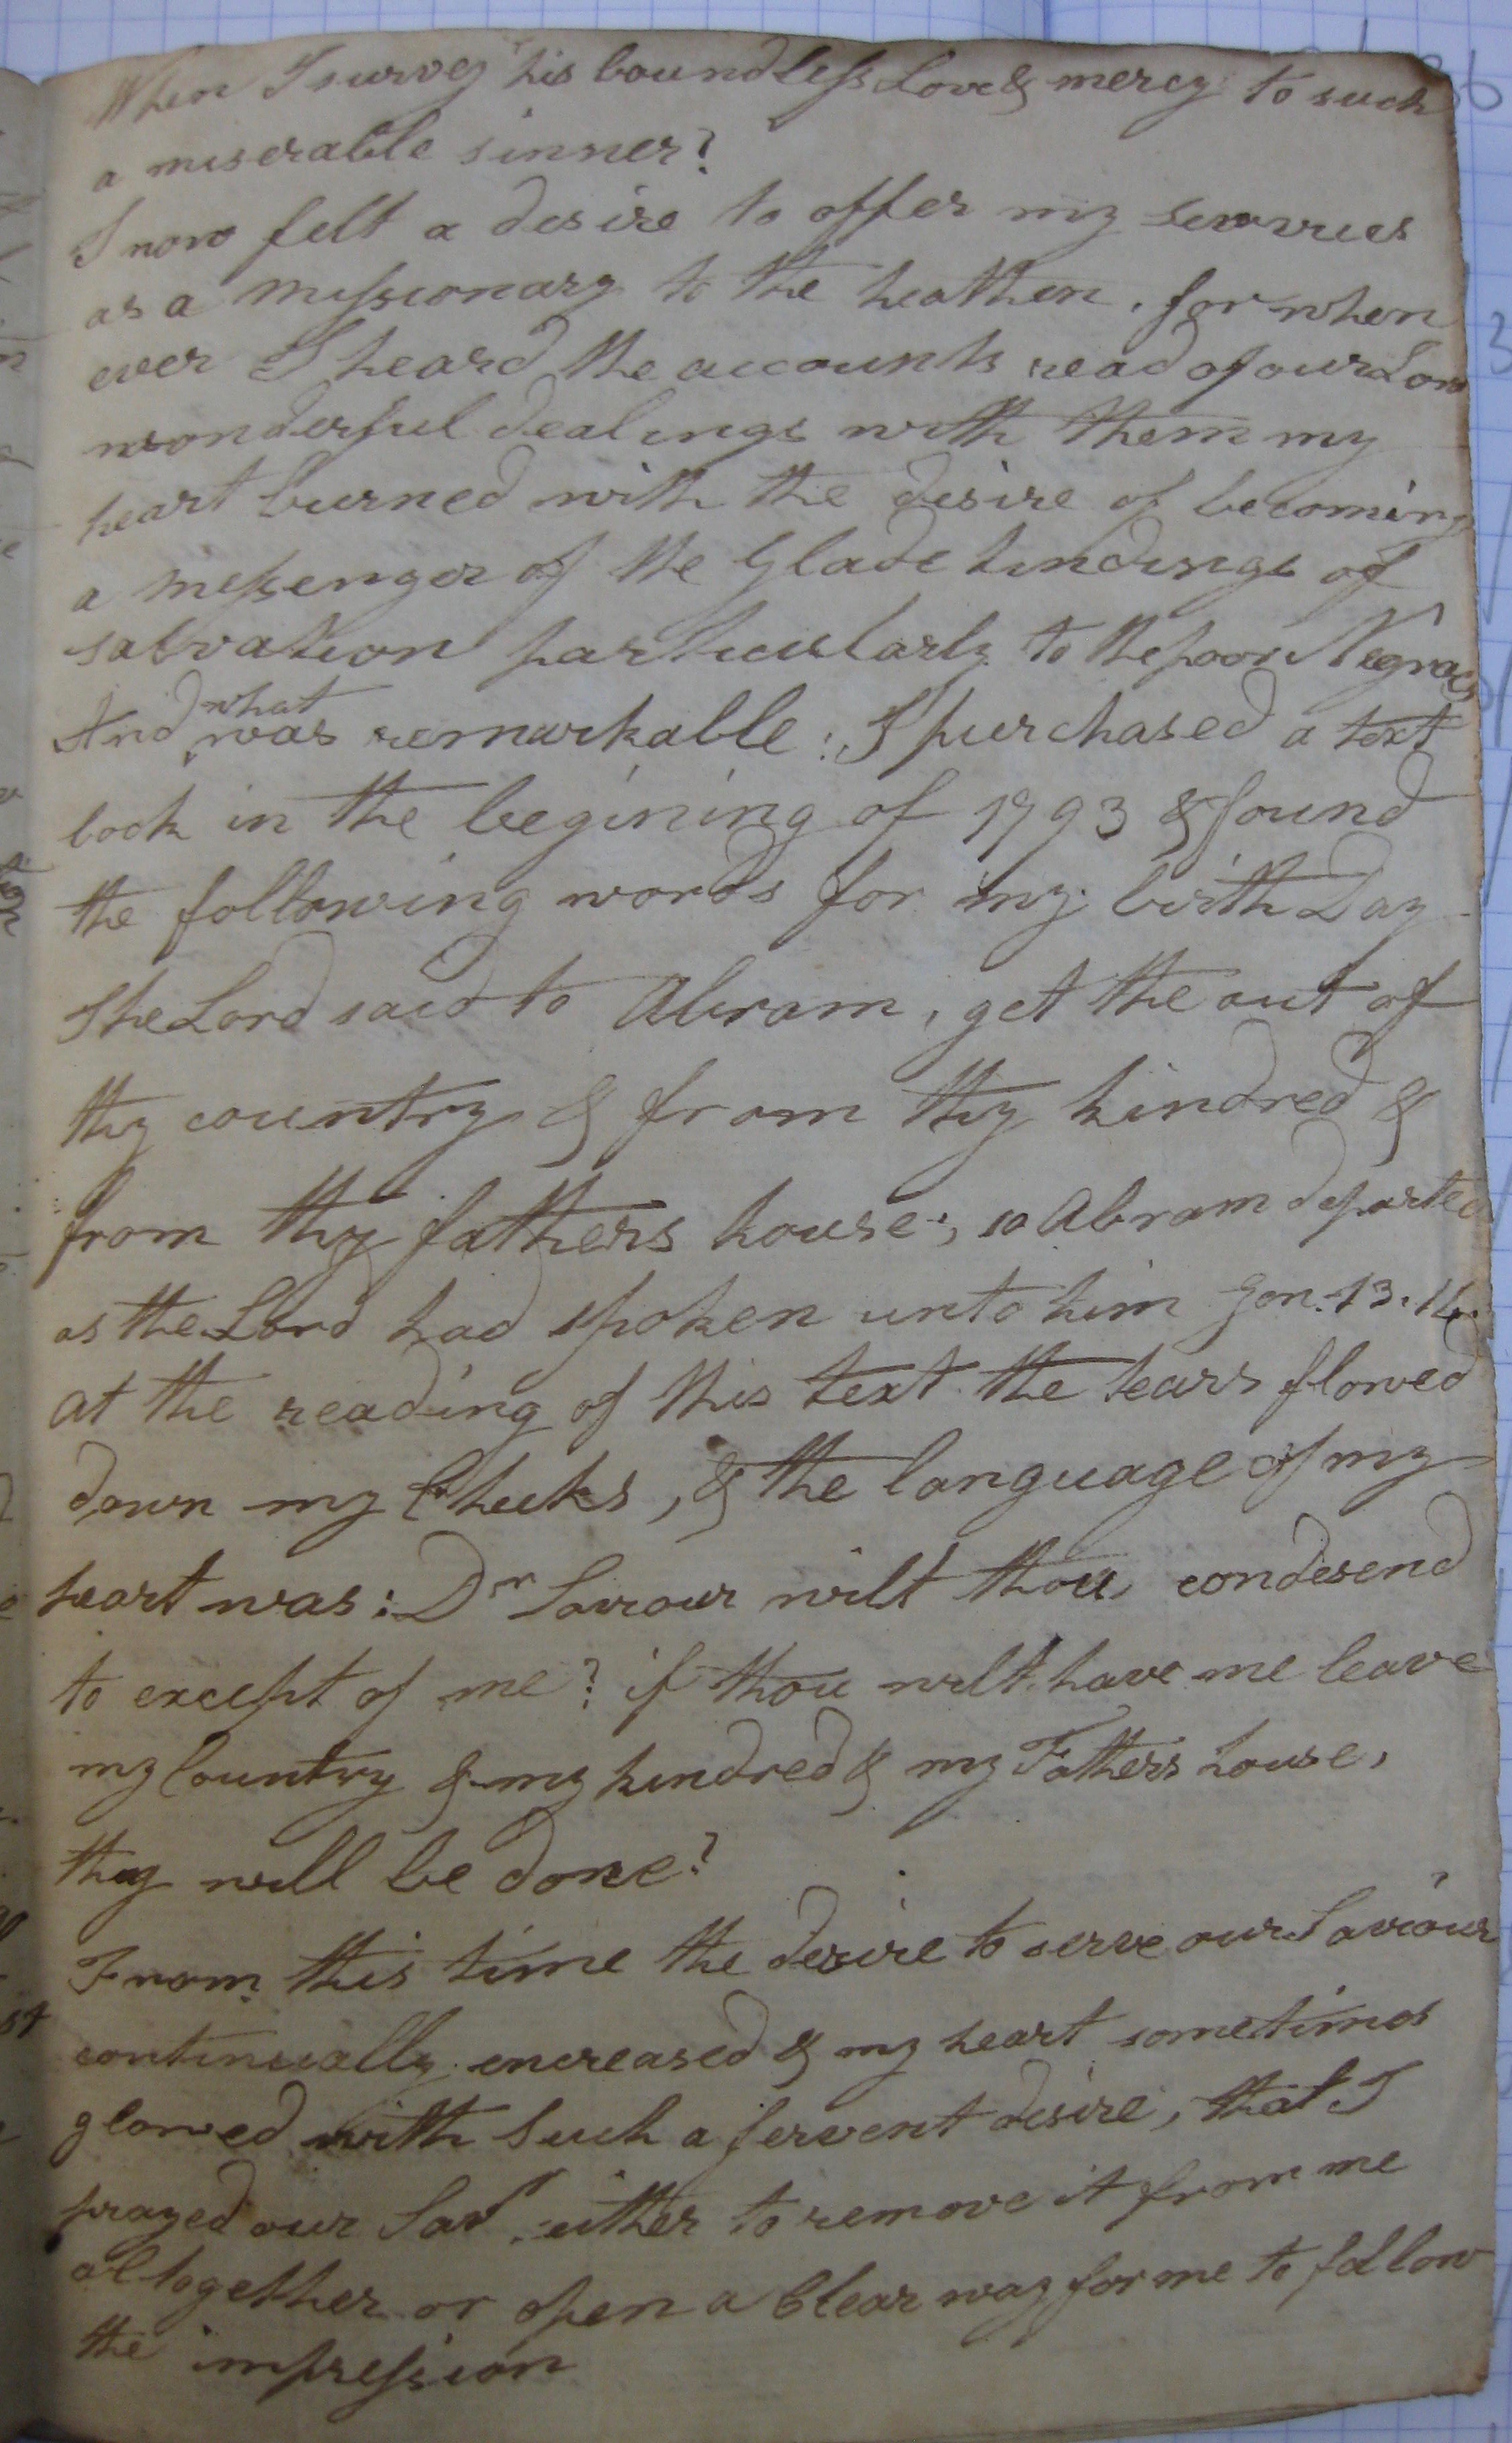 When I survey his boundless Love & mercy to such
a miserable sinner?
I now felt a desire to offer my servvies
as a Missionary to the heathen. for when
ever I heard the accounts read of our Lords
wonderful dealings with them my
heart burned with the desire of becoming
a messenger of the Glade tindings of
salvation particularly to the poor Negroes
And what was remarkable: I purchased a text
book in the begining of 1793 & found
the following words for my birth Day
The Lord said to Abram, get the out of
thy country & from thy kindred &
from thy fathers house, so Abram departed
as the Lord had spoken unto him Gen. 13.14
at the reading of this text the tears flowed
down my Cheeks, & the language of my
heart was: Dr Saviour wilt thou condesend
to except of me? if thou wilt have me leave
my Country & my kindred & my Fathers house,
thy will be done?
From this time the desire to serve our Saviour
continually encreased & my heart sometimes
glowed with Such a fervent desire, that I
prayed our Savr either to remove it from me
altogether or open a Clear way for me to follow
the impression